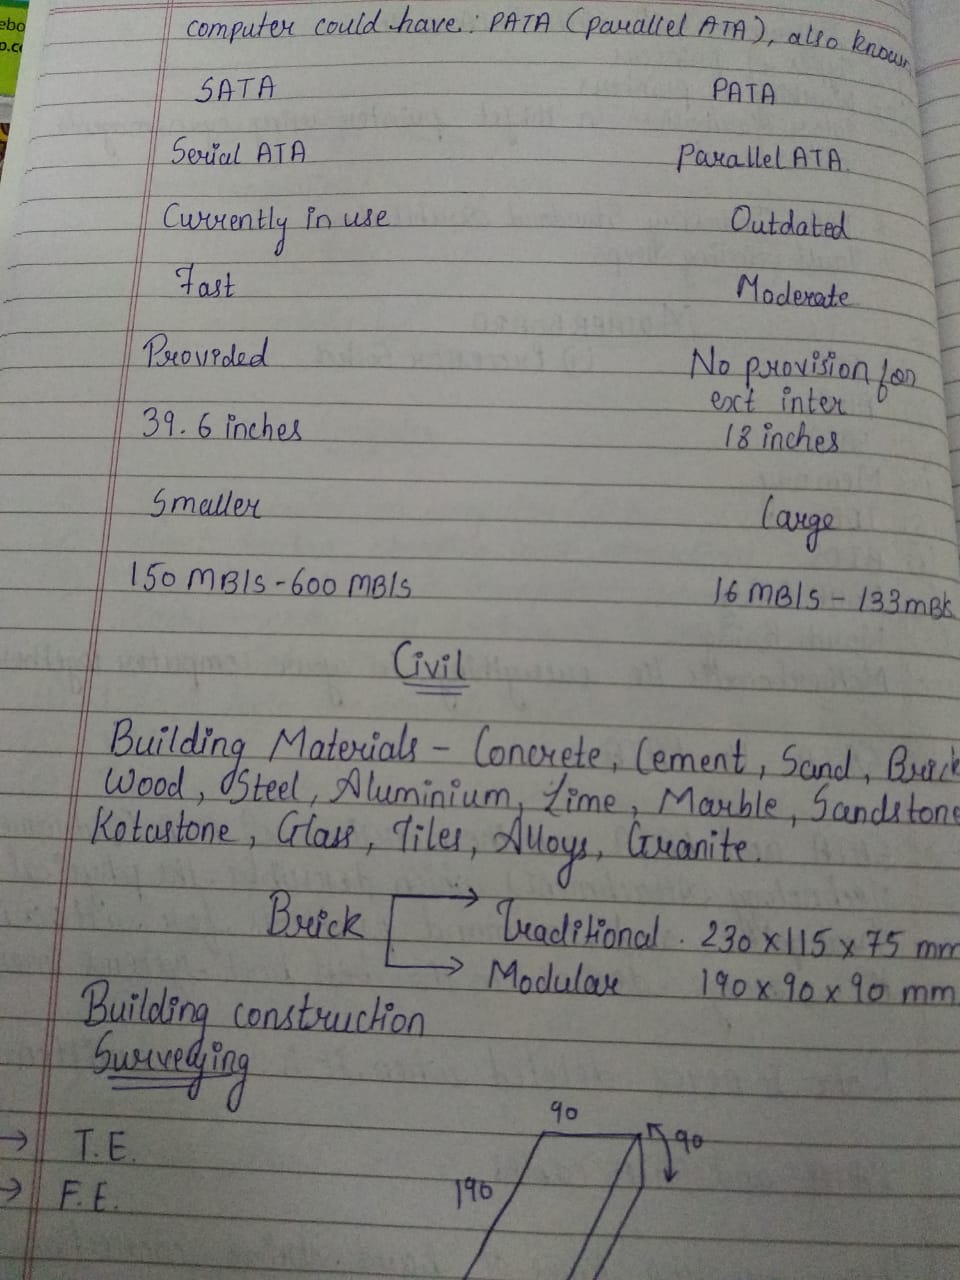 computer could have: PATA (parallel ATA), also known
SATA PATA
Serial ATA Parallel ATA
Currently in use Outdated
Fast Moderate
Provided No provision for
ext inter
39.6 inches 18 inches
Smaller Large
150 MB/S - 600 MB/S 16 MB/S - 133 MB/S
Civil
Building Materials - Concrete, Cement, Sand, Brick
Wood, Steel, Aluminium, Lime, Marble, Sandstone
Kotastone, Glass, Tiles, Alloys, Granite.
Brick Traditional. 230 x 115 x 75 mm
Modular 190 x 90 x 90 mm
Building construction
Surveying
90
→ T.E. 90
→ F.E. 190